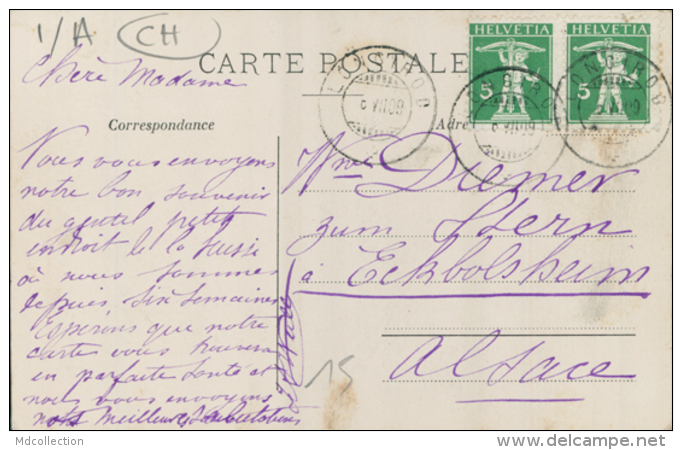 1/A CH
HELVETIA HELVETIA
5 5
CARTE POSTALE
Chère Madame
Correspondance
Nous vous envoyons
notre bon souvenir
du gentil petit
endroit de la Suisse
où nous sommes
depuis six semaines
Espérons que notre
carte vous trouvera
en parfaite santé et
nous vous envoyons
nos meilleures salutations
Wwe Diemer
zum Stern
à Eckbolsheim
Alsace
15
Mdcollection
www.delcampe.net